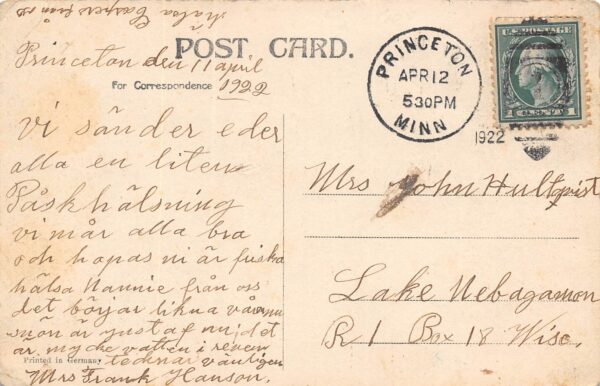 hälsa Caspers från oss
POST CARD.
Princeton den 11 april
1922
For Correspondence
Vi sänder eder
alla en liten
Påskhälsning
vi mår alla bra
och hopas ni är friska
hälsa Nannie från oss
det börjar likna vår nu
snön är just af nu det
är myche vatten i reven
tecknar vänligen
Mrs Frank Hanson.
Printed in Germany
PRINCETON
APR 12
530PM
MINN
1922
U.S. POSTAGE
Mrs John Hultqist
Lake Nebagamon
R 1 Box 18 Wisc.